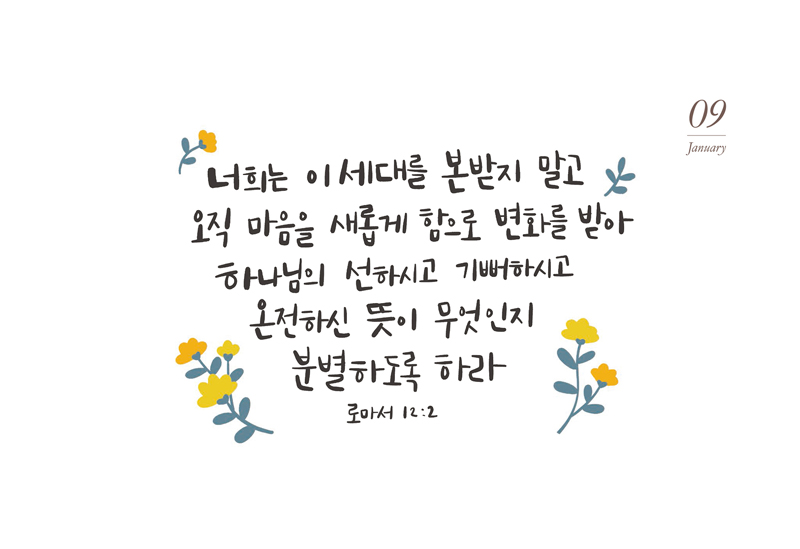 09
January
너희는 이 세대를 본받지 말고
오직 마음을 새롭게 함으로 변화를 받아
하나님의 선하시고 기뻐하시고
온전하신 뜻이 무엇인지
분별하도록 하라
로마서 12:2